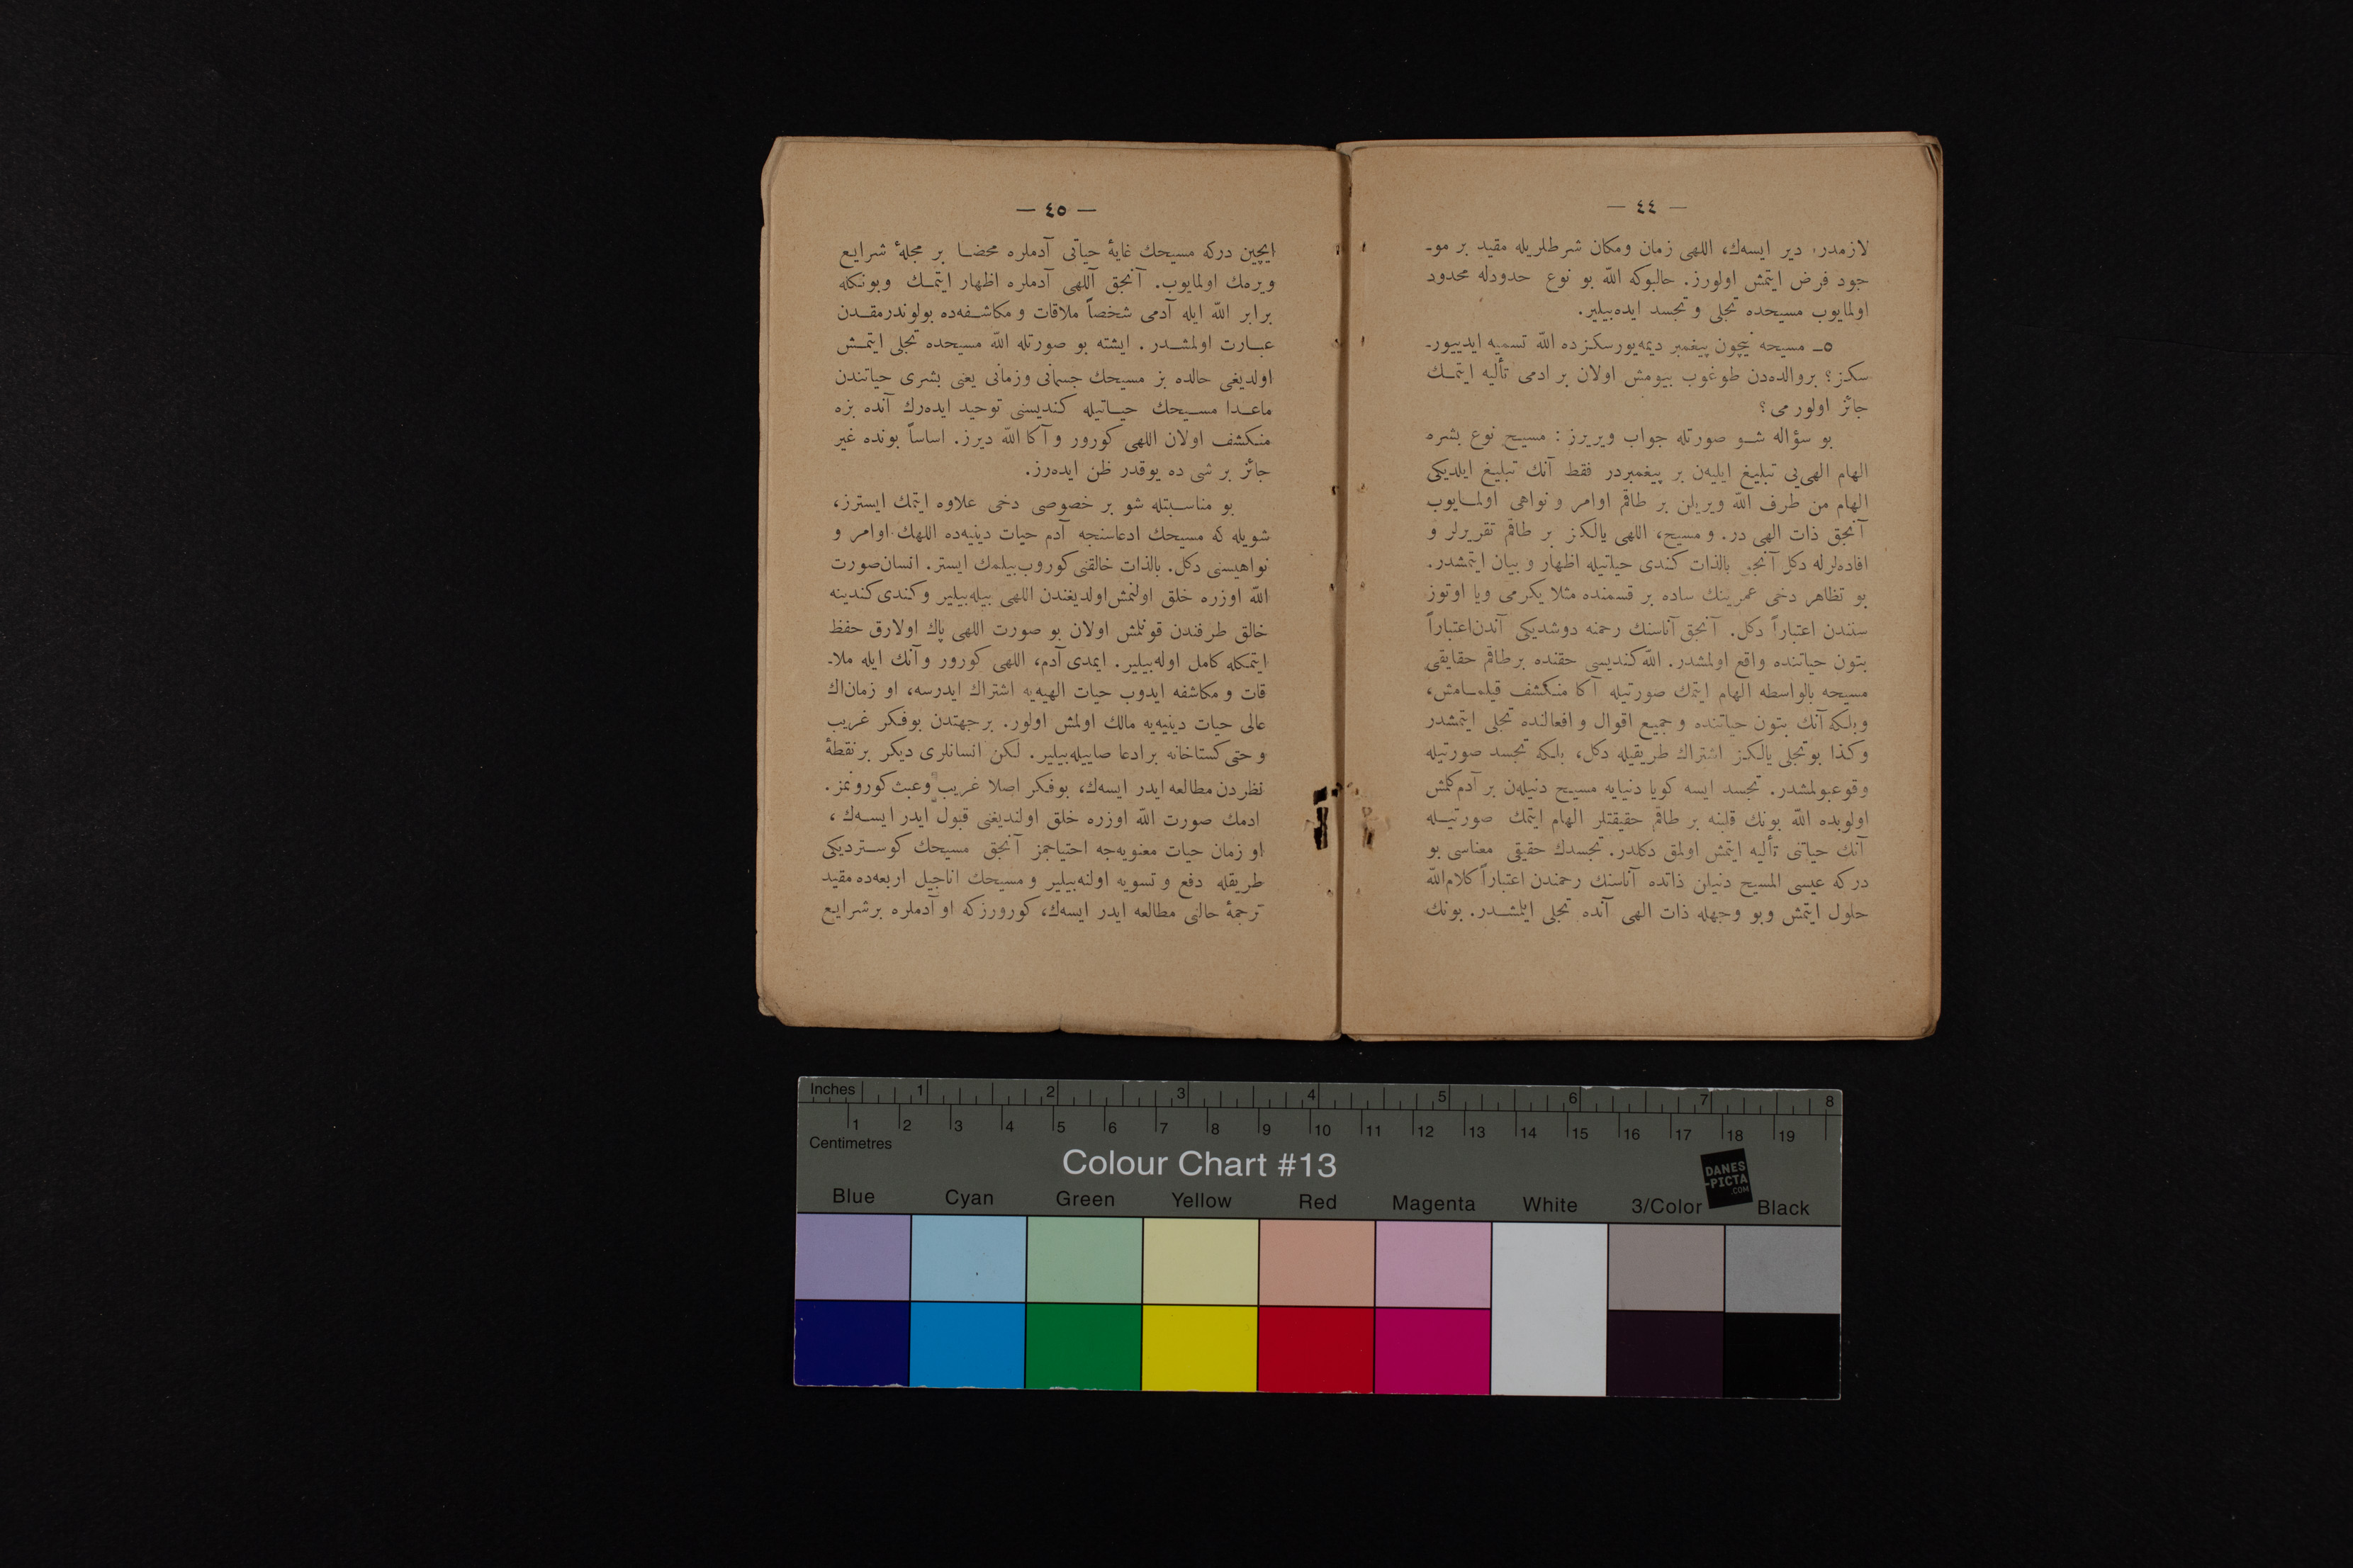 — ٤٤ —
لازمدر، دیر ایسه‌ك، اللهی زمان ومكان شرطلریله مقید بر مو-
جود فرض ایتمش اولورز. حالبوكه اللّه بو نوع حدودله محدود
اولمایوب مسیحده تجلی و تجسد ایده‌بیلیر.
٥ـ مسیحه نیچون پیغمبر دیمه‌یورسكزده اللّه تسمیه ایدییور-
سكز؟ بروالده‌دن طوغوب بیومش اولان بر ادمی تألیه ایتمـك
جائز اولور می؟
بو سؤاله شـو صورتله جواب ویریرز: مسیح نوع بشره
الهام الهی‌یی تبلیغ ایلیه‌ن بر پیغمبردر فقط آنك تبلیغ ایلدیكی
الهام من طرف اللّه ویریلن بر طاقم اوامر و نواهی اولمـایوب
آنجق ذات الهی در. و مسیح، اللهی یالكز بر طاقم تقریرلر و
افاده‌لرله دكل آنجق بالذات كندی حیاتیله اظهار و بیان ایتمشدر.
بو تظاهر دخی عمرینك ساده بر قسمنده مثلا یكرمی ویا اوتوز
سنندن اعتباراً دكل. آنجق آناسنك رحمنه دوشدیكی آندن اعتباراً
بتون حیاتنده واقع اولمشدر. اللّه كندیسی حقنده برطاقم حقایقی
مسیحه بالواسطه الهام ایتمك صورتیله آكا منـكشف قیلمـامش،
وبلكه آنك بتون حیاتنده و جمیع اقوال و افعالنده تجلی ایتمشدر
وكذا بوتجلی یالكز اشتراك طریقیله دكل، بلكه تجسد صورتیله
وقوعبولمشدر. تجسد ایسه كویا دنیایه مسیح دنیله‌ن بر آدم كلمش
اولوبده اللّه بونك قلبنه بر طاقم حقیقتلر الهام ایتمك صورتیـله
آنك حیاتنی تألیه ایتمش اولمق دكلدر. تجسدك حقیقی معناسی بو
دركه عیسی المسیح دنیلن ذاتده آناسنك رحمندن اعتباراً كلام‌اللّه
حلول ایتمش وبو وجهله ذات الهی آنده تجلی ایلمشـدر. بونك
— ٤٥ —
ایچین دركه مسیحك غایهٔ حیاتی آدملره محضـا بر مجلهٔ شرایع
ویرمك اولمایوب. آنجق آللهی آدملره اظهار ایتمـك وبونكله
برابر اللّه ایله آدمی شخصاً ملاقات و مكاشـفه‌ده بولوندرمقـدن
عبـارت اولمشـدر. ایشته بو صورتله اللّه مسیحده تجلی ایتمـش
اولدیغی حالده بز مسیحك جسمانی وزمانی یعنی بشری حیاتندن
ماعـدا مسـیحك حیـاتیله كندیسنی توحید ایده‌رك آنده بزه
منـكشف اولان اللهی كورور و آكا اللّه دیرز. اساساً بونده غیر
جائز بر شی ده یوقدر ظن ایده‌رز.
بو مناسـبتله شو بر خصوصی دخی علاوه ایتمك ایسترز،
شویله كه مسیحك ادعاسنجه آدم حیات دینیه‌ده اللهك اوامر و
نواهیسنی دكل. بالذات خالقنی كوروب‌بیلمك ایستر. انسان‌صورت
اللّه اوزره خلق اولنمش‌اولدیغندن اللهی بیله‌بیلیر و كندی كندینه
خالق طرفندن قونلمش اولان بو صورت اللهی پاك اولارق حفظ
ایتمكله كامل اوله‌بیلیر. ایمدی آدم، اللهی كورور و آنك ایله ملا-
قات و مكاشفه ایدوب حیات الهیه‌یه اشتراك ایدرسه، او زمان‌اك
عالی حیات دینیه‌یه مالك اولمش اولور. برجهتدن بوفـكر غریب
و حتی كستاخانه برادعا صاییله‌بیلیر. لـكن انسانلری دیكر برنقطهٔ
نظردن مطالعه ایدر ایسه‌ك، بوفـكر اصلا غریب وعبث‌كورونمز.
ادمك صورت اللّه اوزره خلق اولندیغنی قبول ایدر ایسـه‌ك،
او زمان حیات معنویه‌جه احتیاجمز آنجق مسیحك كوسـتردیكی
طریقله دفع و تسویه اولنه‌بیلیر و مسیحك اناجیل اربعه‌ده مقید
ترجمهٔ حالنی مطالعه ایدر ایسه‌ك، كورورزكه او آدملره برشرایع
Inches 1 2 3 4 5 6 7 8
1 2 3 4 5 6 7 8 9 10 11 12 13 14 15 16 17 18 19
Centimetres
Colour Chart #13
DANES
-PICTA
.COM
Blue Cyan Green Yellow Red Magenta White 3/Color Black